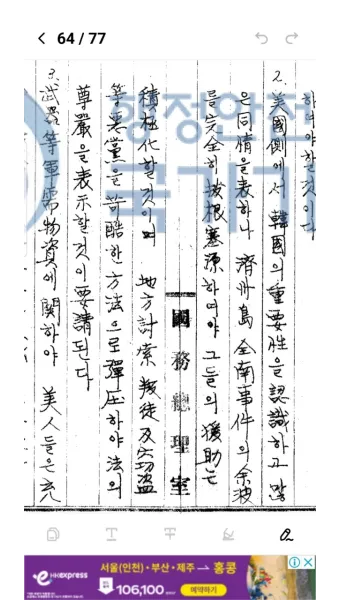 64 / 77
행정안전
국가기
하여야할것이다
2. 美國側에서 韓國의 重要性을 認識하고 많
은同情을表하나 濟州島 全南事件의 余波
를完全히 拔根塞源하여야 그들의 援助는
國務總理室
積極化할것이며 地方討索 叛徒及窃盜
等惡黨을 苛酷한 方法으로 彈圧하야 法의
尊嚴을表示할것이 要請된다
3. 武器等軍需物資에 關하야 美人들은 充
HKexpress
서울(인천)·부산·제주 → 홍콩
106,100
예약하기